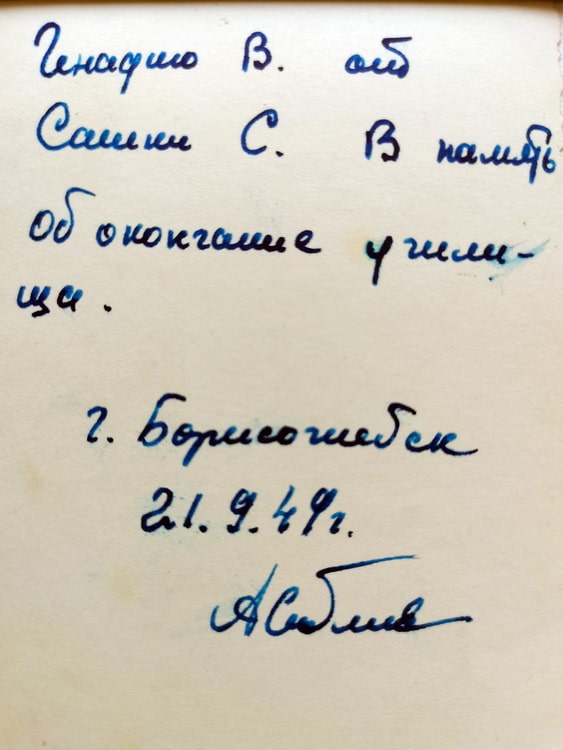 Генадию В. от
Сашки С. В память
об окончание учили-
ща.
г. Борисоглебск
21.9.49г.